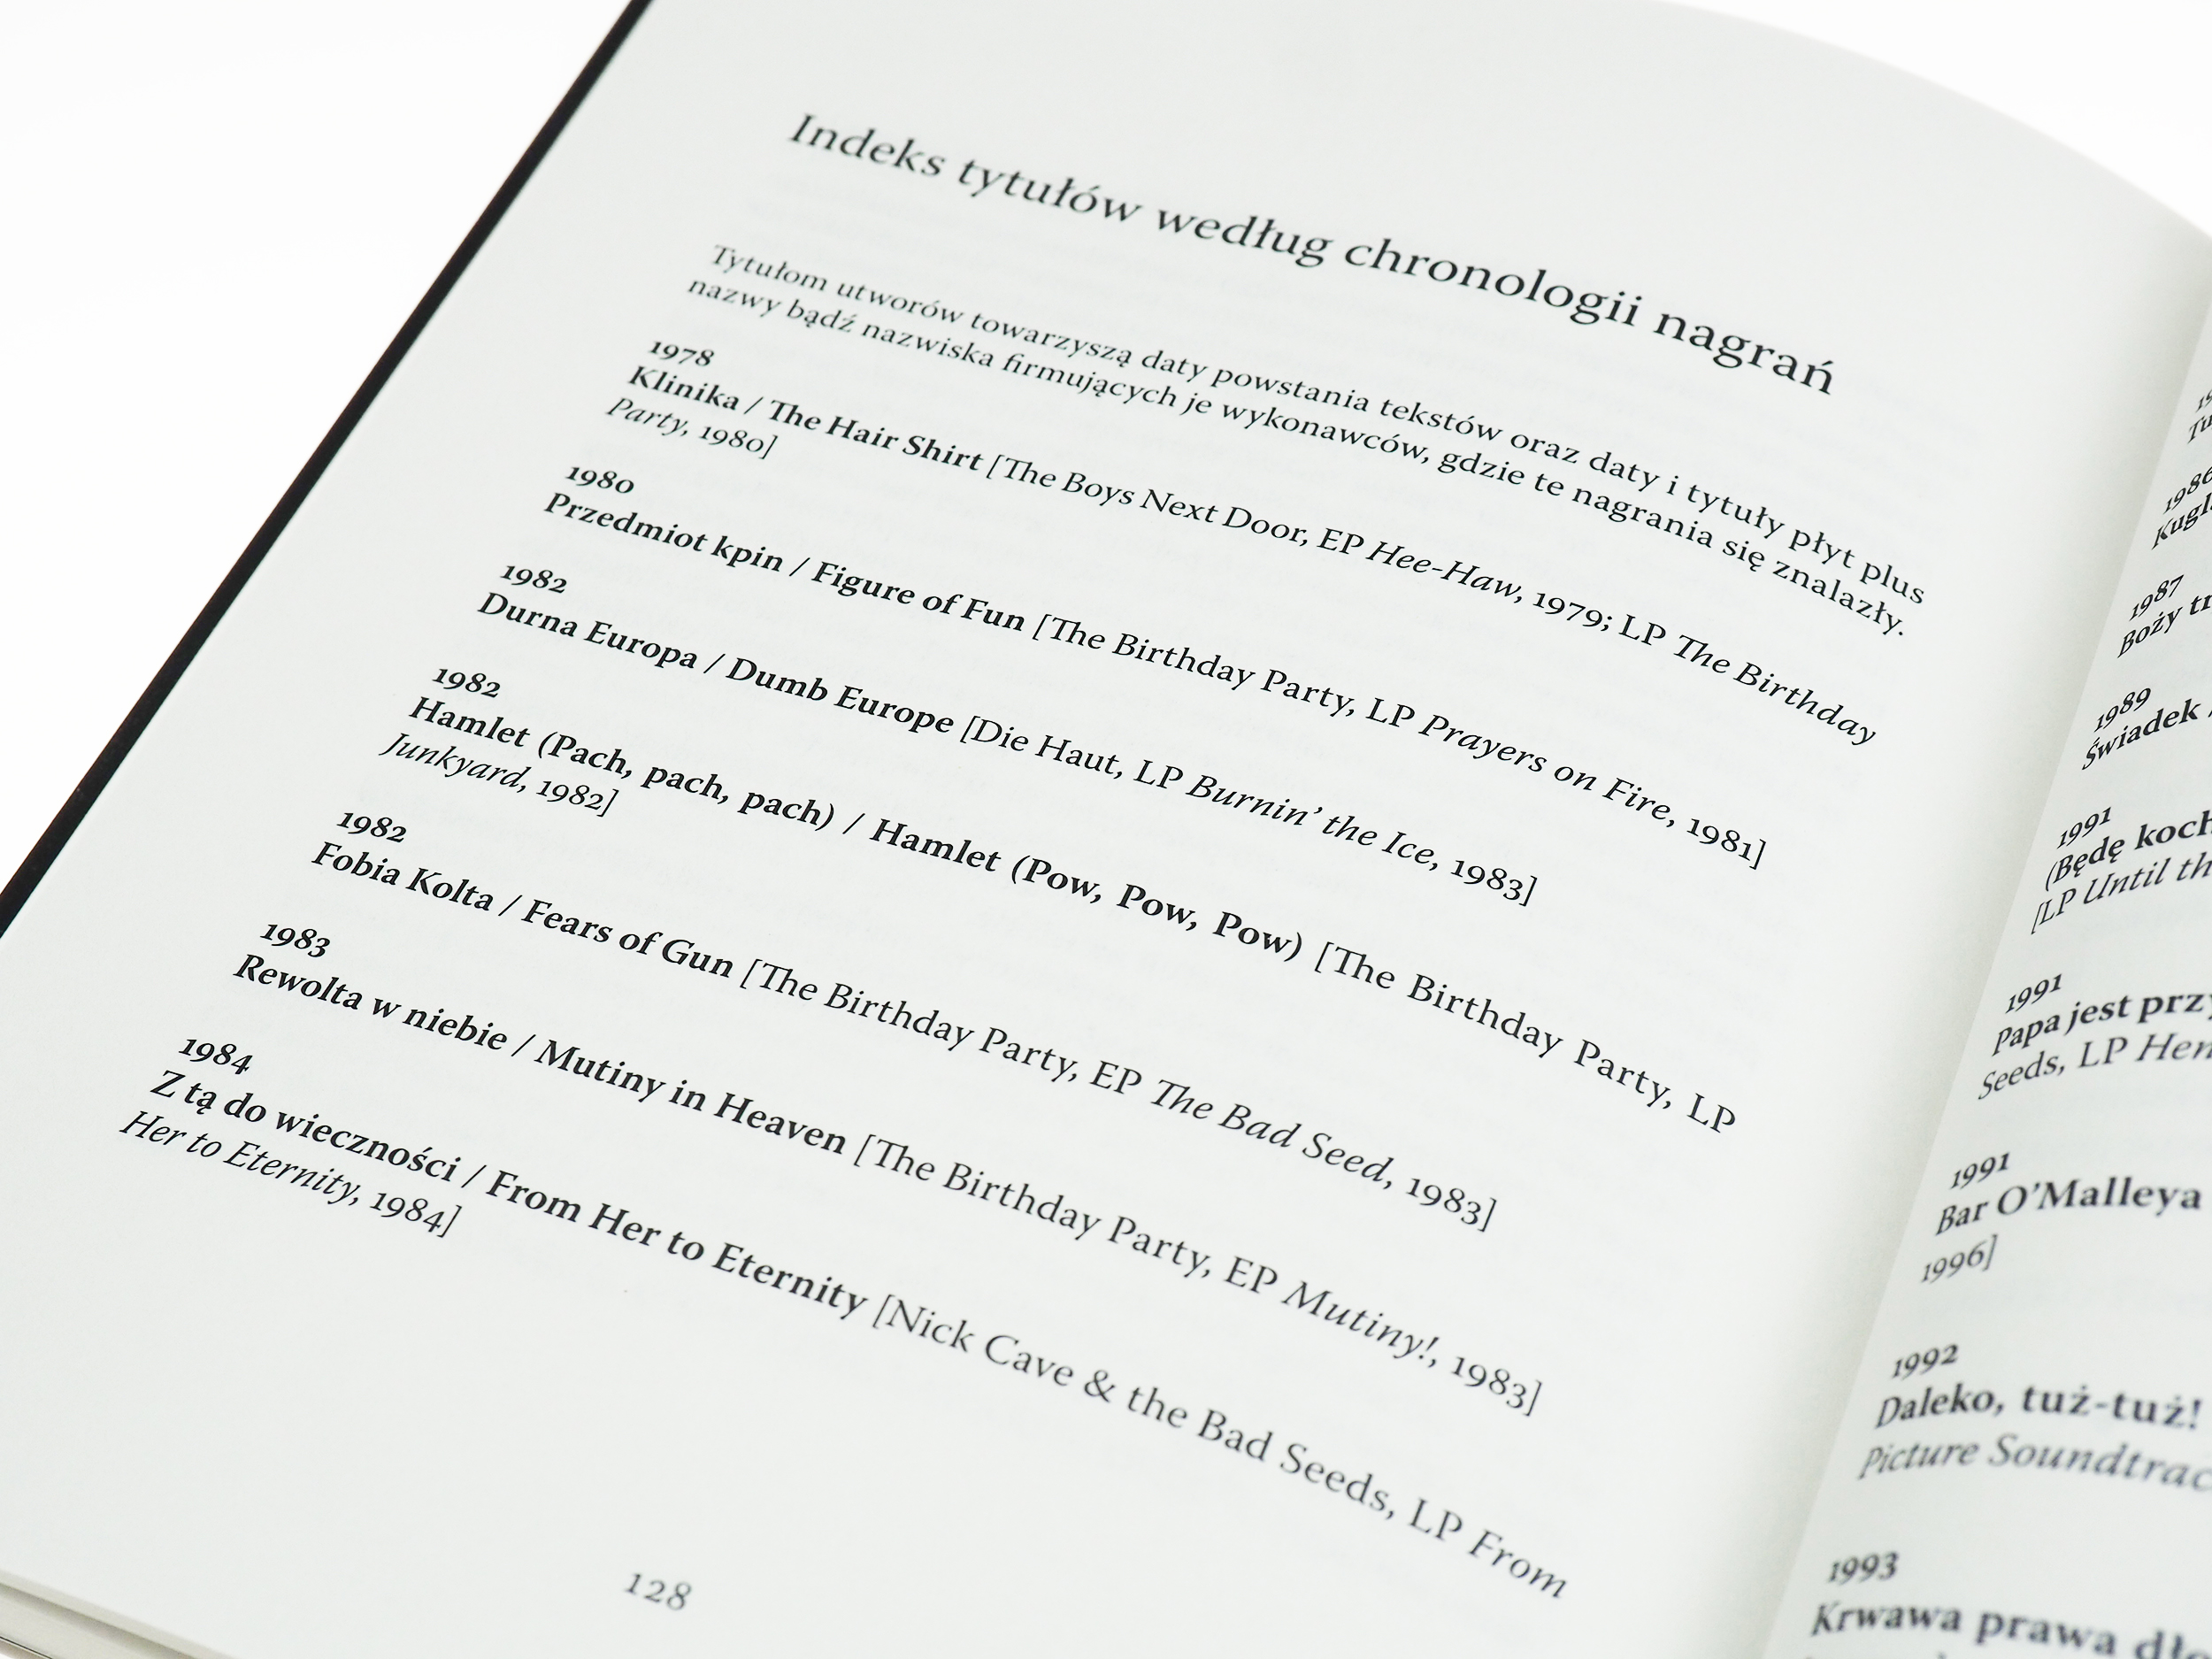 Indeks tytułów według chronologii nagrań
Tytułom utworów towarzyszą daty powstania tekstów oraz daty i tytuły płyt plus
nazwy bądź nazwiska firmujących je wykonawców, gdzie te nagrania się znalazły.
1978
Klinika / The Hair Shirt [The Boys Next Door, EP Hee-Haw, 1979; LP The Birthday
Party, 1980]
1980
Przedmiot kpin / Figure of Fun [The Birthday Party, LP Prayers on Fire, 1981]
1982
Durna Europa / Dumb Europe [Die Haut, LP Burnin’ the Ice, 1983]
1982
Hamlet (Pach, pach, pach) / Hamlet (Pow, Pow, Pow) [The Birthday Party, LP
Junkyard, 1982]
1982
Fobia Kolta / Fears of Gun [The Birthday Party, EP The Bad Seed, 1983]
1983
Rewolta w niebie / Mutiny in Heaven [The Birthday Party, EP Mutiny!, 1983]
1984
Z tą do wieczności / From Her to Eternity [Nick Cave & the Bad Seeds, LP From
Her to Eternity, 1984]
128
1986
1987
Boży
1989
Świadek /
1991
(Będę
[LP Until
1991
Papa jest
Seeds, LP
1991
Bar O’Malleya
1996]
1992
Daleko, tuż-tuż!
Picture
1993
Krwawa prawa